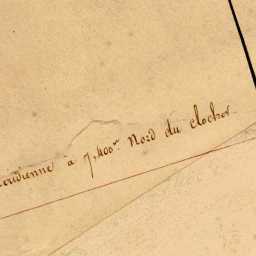 ridienne à 7,400m Nord du clocher